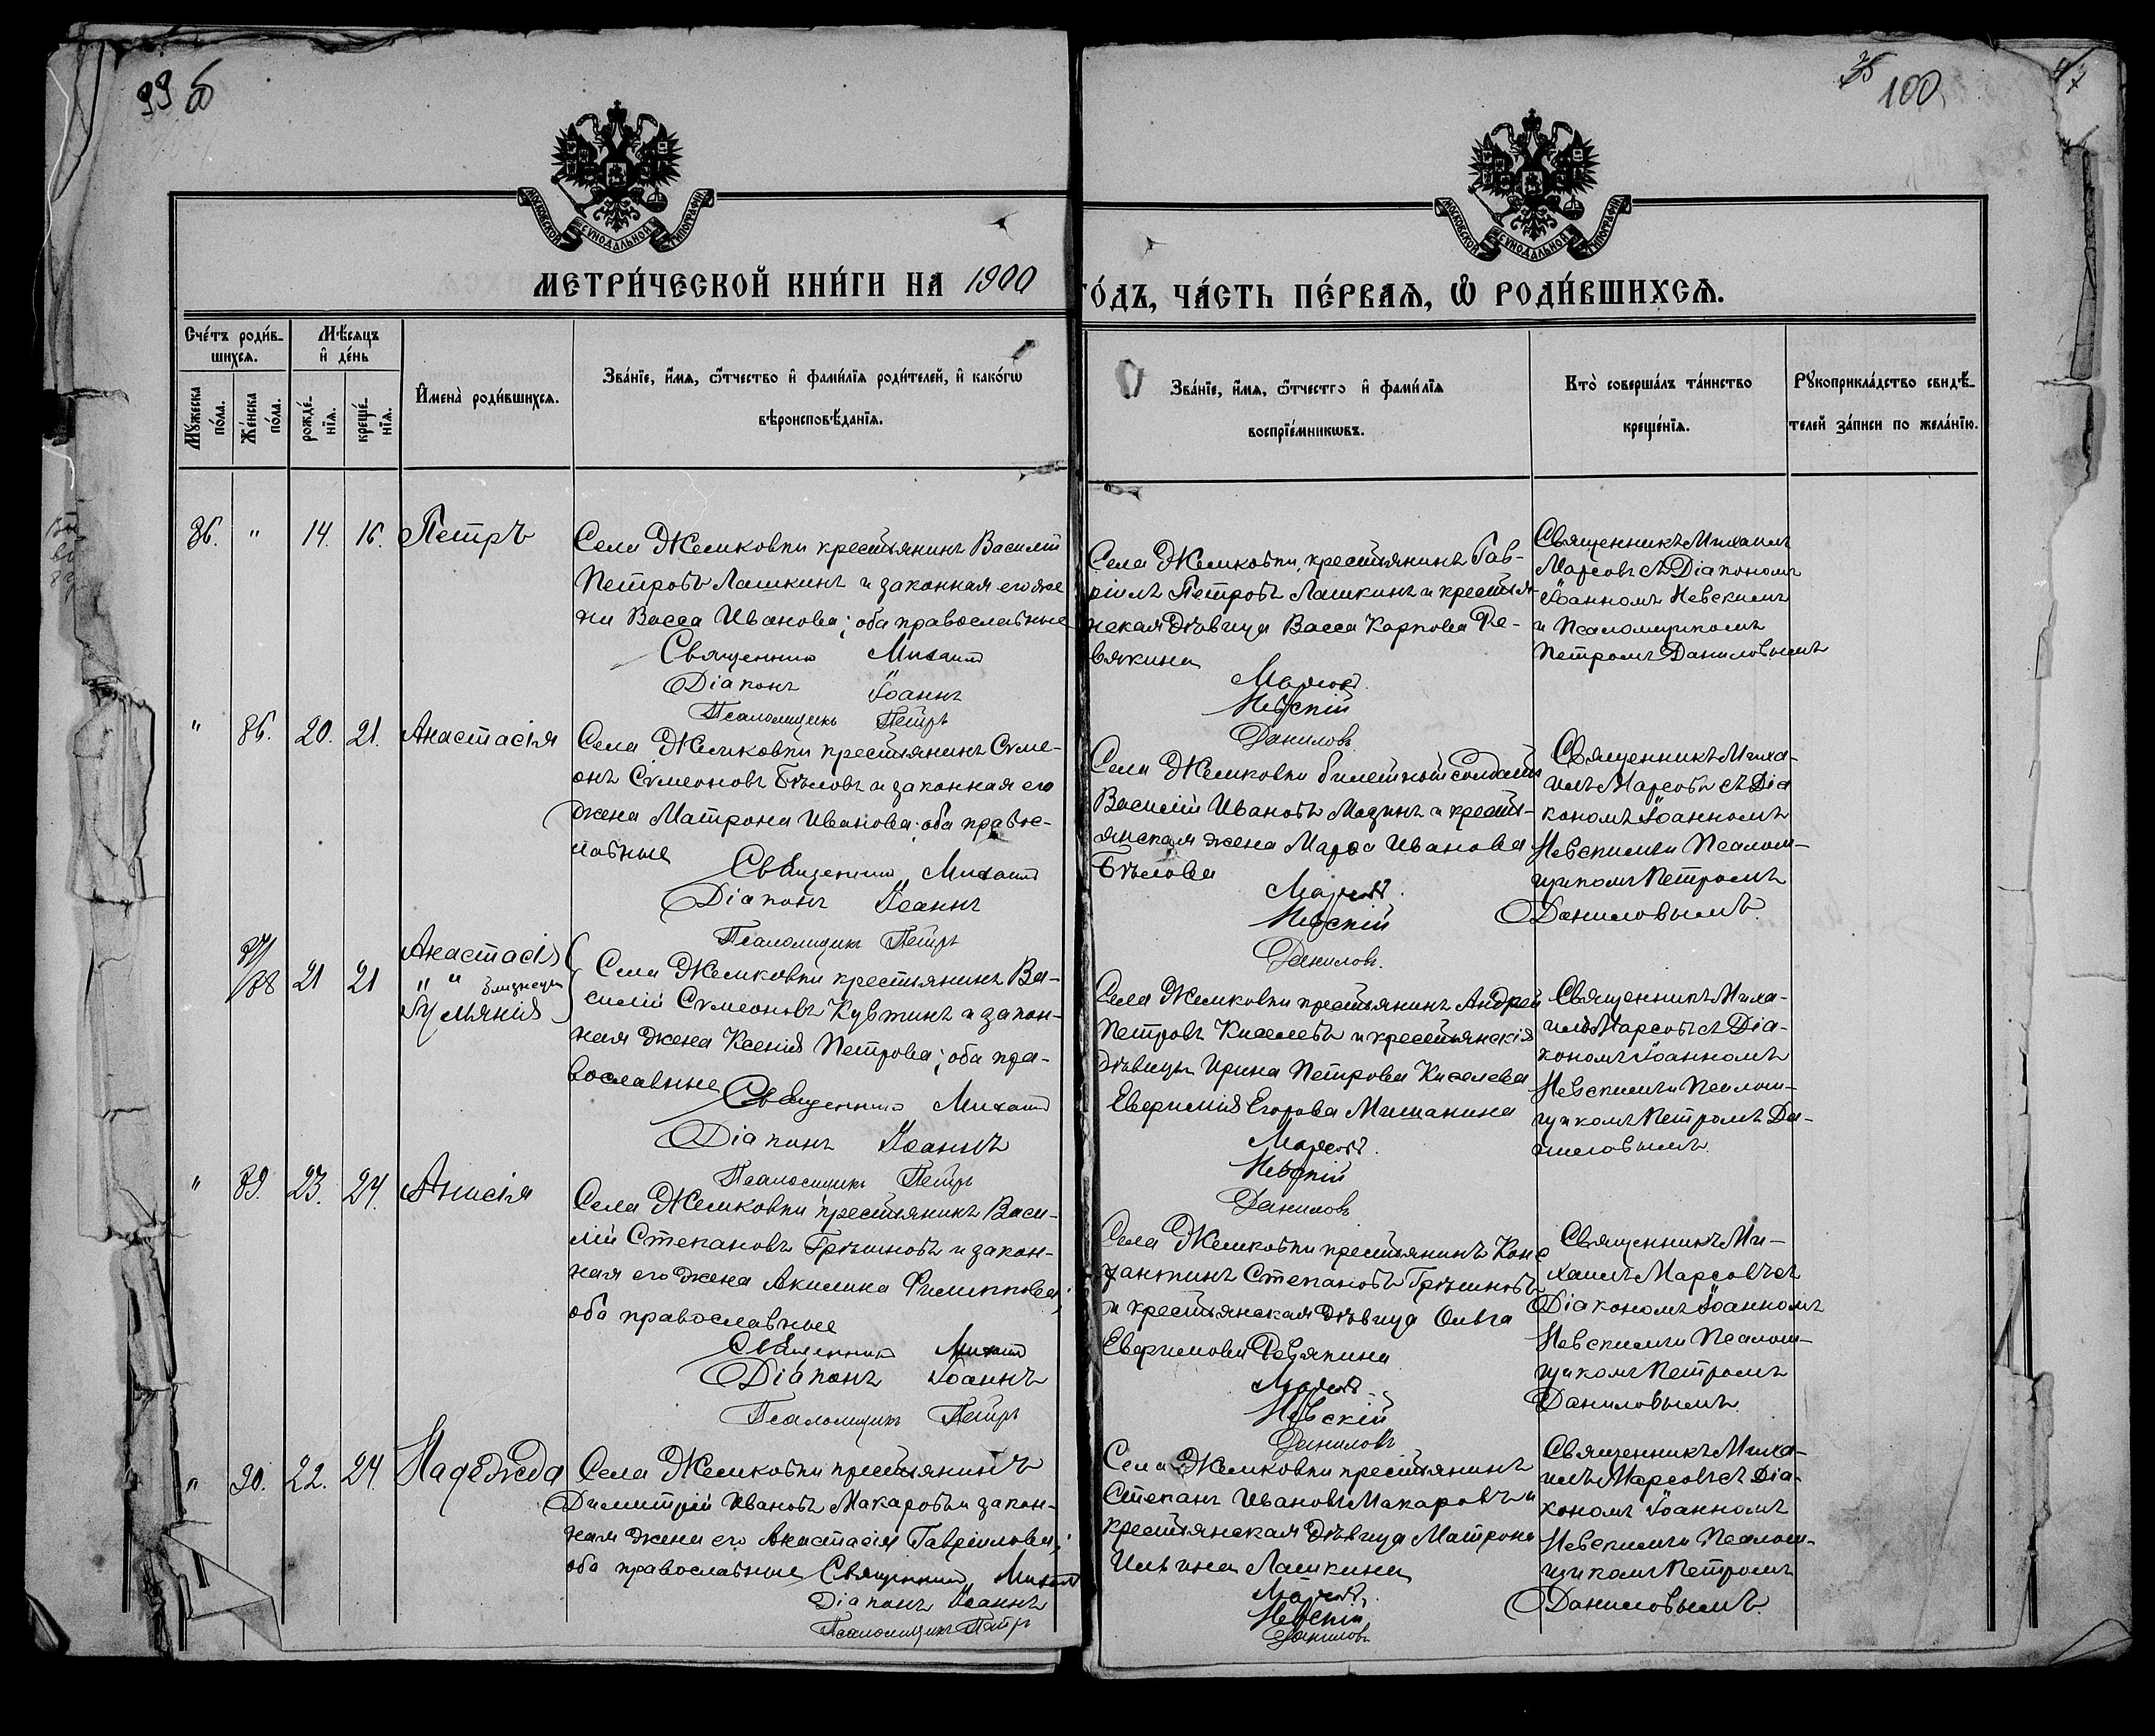 99 об
35
100
47
МОСКОВСКОЙ СУНОДАЛЬНОЙ ТИПОГРАФІИ
МОСКОВСКОЙ СУНОДАЛЬНОЙ ТИПОГРАФІИ
МЕТРИ́ЧЕСКОЙ КНИ́ГИ НА 1900
ГО́ДЪ, ЧА́СТЬ ПЕ́РВАѦ, Ѡ РОДИ́ВШИХСѦ.
Сче́тъ роди́в-
шихсѧ.
Мꙋ́жеска по́ла.
Же́нска по́ла.
Мѣ́сѧцъ
и҆ де́нь
рожде́-нїѧ.
креще́-нїѧ.
И҆мена̀ роди́вшихсѧ.
Зва́нїе, и҆́мѧ, ѻ҆́тчество и҆ фами́лїѧ роди́телей, и҆ како́гѡ
вѣроисповѣ́данїѧ.
Зва́нїе, и҆́мѧ, ѻ҆́тчество и҆ фами́лїѧ
воспрїе́мникѡвъ.
Кто̀ соверша́лъ та́инство
креще́нїѧ.
Рꙋкоприкла́дство свидѣ́-
телей за́писи по жела́нїю.
36. " 14. 16. Петръ
Села Желиковки крестьянинъ Василій
Петровъ Лашкинъ и законная его же
на Васса Иванова; оба православные
Священникъ Михаилъ
Діаконъ Іоаннъ
Псаломщикъ Петръ
Села Желиковки, крестьянинъ Гав-
ріилъ Петровъ Лашкинъ и крестья-
нская дѣвица Васса Карпова Ре-
вякина
Марсовъ.
Невскій
Даниловъ
Священникъ Михаилъ
Марсовъ съ Діакономъ
Іоанномъ Невскимъ
и Псаломщикомъ
Петромъ Даниловымъ
" 86. 20. 21. Анастасія
Села Желиковки крестьянинъ Симе-
онъ Симеоновъ Бѣловъ и законная его
жена Матрона Иванова; оба правос-
лавные
Священникъ Михаилъ
Діаконъ Іоаннъ
Псаломщикъ Петръ
Села Желиковки билетный солдатъ
Василій Ивановъ Мазинъ и кресть-
янская жена Марѳа Иванова
Бѣлова
Марсовъ.
Невскій
Даниловъ.
Священникъ Миха-
илъ Марсовъ съ Діа
кономъ Іоанномъ
Невскимъ и Псалом-
щикомъ Петромъ
Даниловымъ.
87/88 21 21 Анастасія
" " близнецы
Іуліанія
Села Желиковки крестьянинъ Ва-
силій Симеоновъ Кувтинъ и закон-
ная жена Ксенія Петрова; оба пра-
вославные
Священникъ Михаилъ
Діаконъ Іоаннъ
Псаломщикъ Петръ
Села Желиковки крестьянинъ Андрей
Петровъ Киселевъ и крестьянскія
дѣвицы Ирина Петрова Киселева
Евфимія Егорова Мишанина
Марсовъ.
Невскій
Даниловъ
Священникъ Миха-
илъ Марсовъ съ Діа-
кономъ Іоанномъ
Невскимъ и Псалом-
щикомъ Петромъ Да-
ниловымъ.
" 89. 23. 24. Анисія
Села Желиковки крестьянинъ Васи-
лій Степановъ Грѣшновъ и закон-
ная его жена Акилина Филиппова;
оба православные
Священникъ Михаилъ
Діаконъ Іоаннъ
Псаломщикъ Петръ
Села Желиковки крестьянинъ Конс
тантинъ Степановъ Грѣшновъ
и крестьянская дѣвица Ольга
Евфимова Ревякина
Марсовъ.
Невскій
Даниловъ
Священникъ Ми-
хаилъ Марсовъ съ
Діакономъ Іоанномъ
Невскимъ и Псалом-
щикомъ Петромъ
Даниловымъ.
" 90. 22. 24. Надежда
Села Желиковки крестьянинъ
Димитрій Ивановъ Макаровъ и закон-
ная жена его Анастасія Гавріилова;
оба православные Священникъ Михаилъ
Діаконъ Іоаннъ
Псаломщикъ Петръ
Села Желиковки крестьянинъ
Степанъ Ивановъ Макаровъ и
крестьянская дѣвица Матрона
Ильина Лашкина
Марсовъ.
Невскій
Даниловъ
Священникъ Миха-
илъ Марсовъ съ Діа-
кономъ Іоанномъ
Невскимъ и Псалом-
щикомъ Петромъ
Даниловымъ.